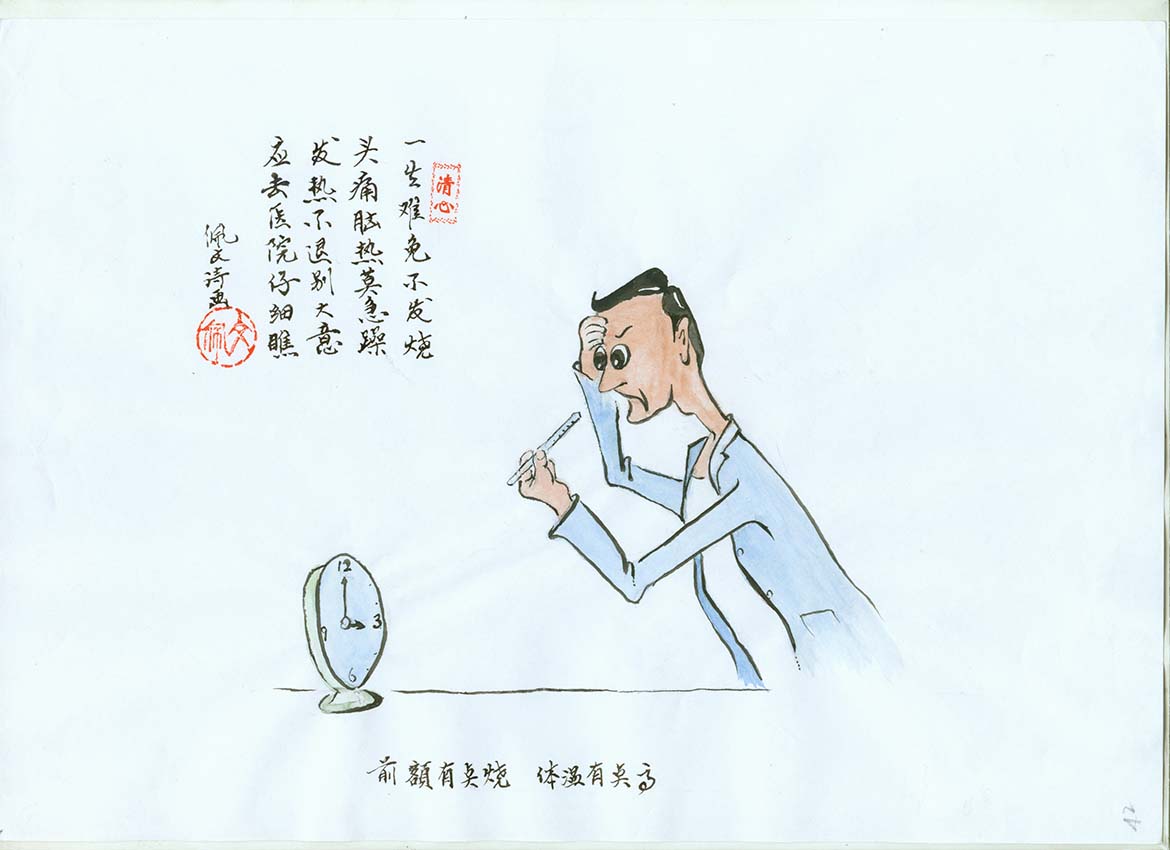 清心
一生难免不发烧
头痛脑热莫急躁
发热不退别大意
应去医院仔细瞧
佩文诗画
佩文
12
3
6
9
前额有点烧 体温有点高
42